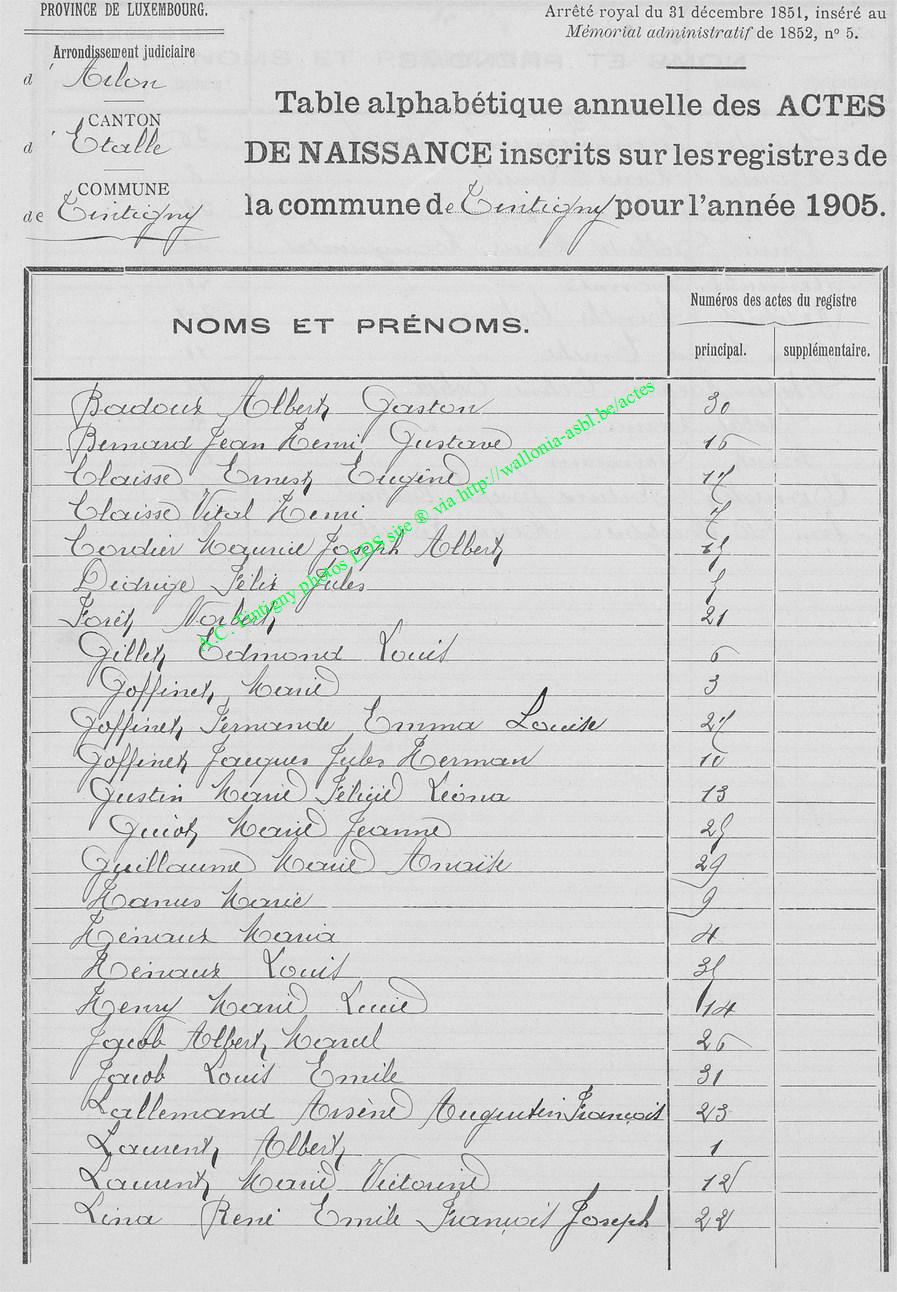 PROVINCE DE LUXEMBOURG.
Arrondissement judiciaire
d' Arlon
CANTON
d' Etalle
COMMUNE
de Tintigny
Arrêté royal du 31 décembre 1851, inséré au
Mémorial administratif de 1852, n° 5.
Table alphabétique annuelle des ACTES
DE NAISSANCE inscrits sur les registres de
la commune de Tintigny pour l'année 1905.
NOMS ET PRÉNOMS.
Numéros des actes du registre
principal. supplémentaire.
Badoux Albert Gaston 30
Bernard Jean Henri Gustave 16
Claisse Ernest Eugène 17
Claisse Vital Henri 7
Cordier Maurice Joseph Albert
Didrige Félix Jules
Forêt Norbert 21
Gillet Edmond Louis 6
Goffinet Marie 3
Goffinet Fernande Emma Louise 27
Goffinet Jacques Jules Herman 10
Gustin Marie Félicie Léona 13
Guiot Marie Jeanne 25
Guillaume Marie Anaïse 29
Hanus Marie 9
Hénaux Maria 4
Hénaux Louis
Henry Marie Lucie 14
Jacob Albert Marcel 26
Jacob Louis Emile 31
Lallemand Arsène Augustin François 23
Laurent Albert 1
Laurent Marie Victorine 12
Lina René Emile François Joseph 22
A.C. Tintigny photos LDS site ® via http://wallonia-asbl.be/actes